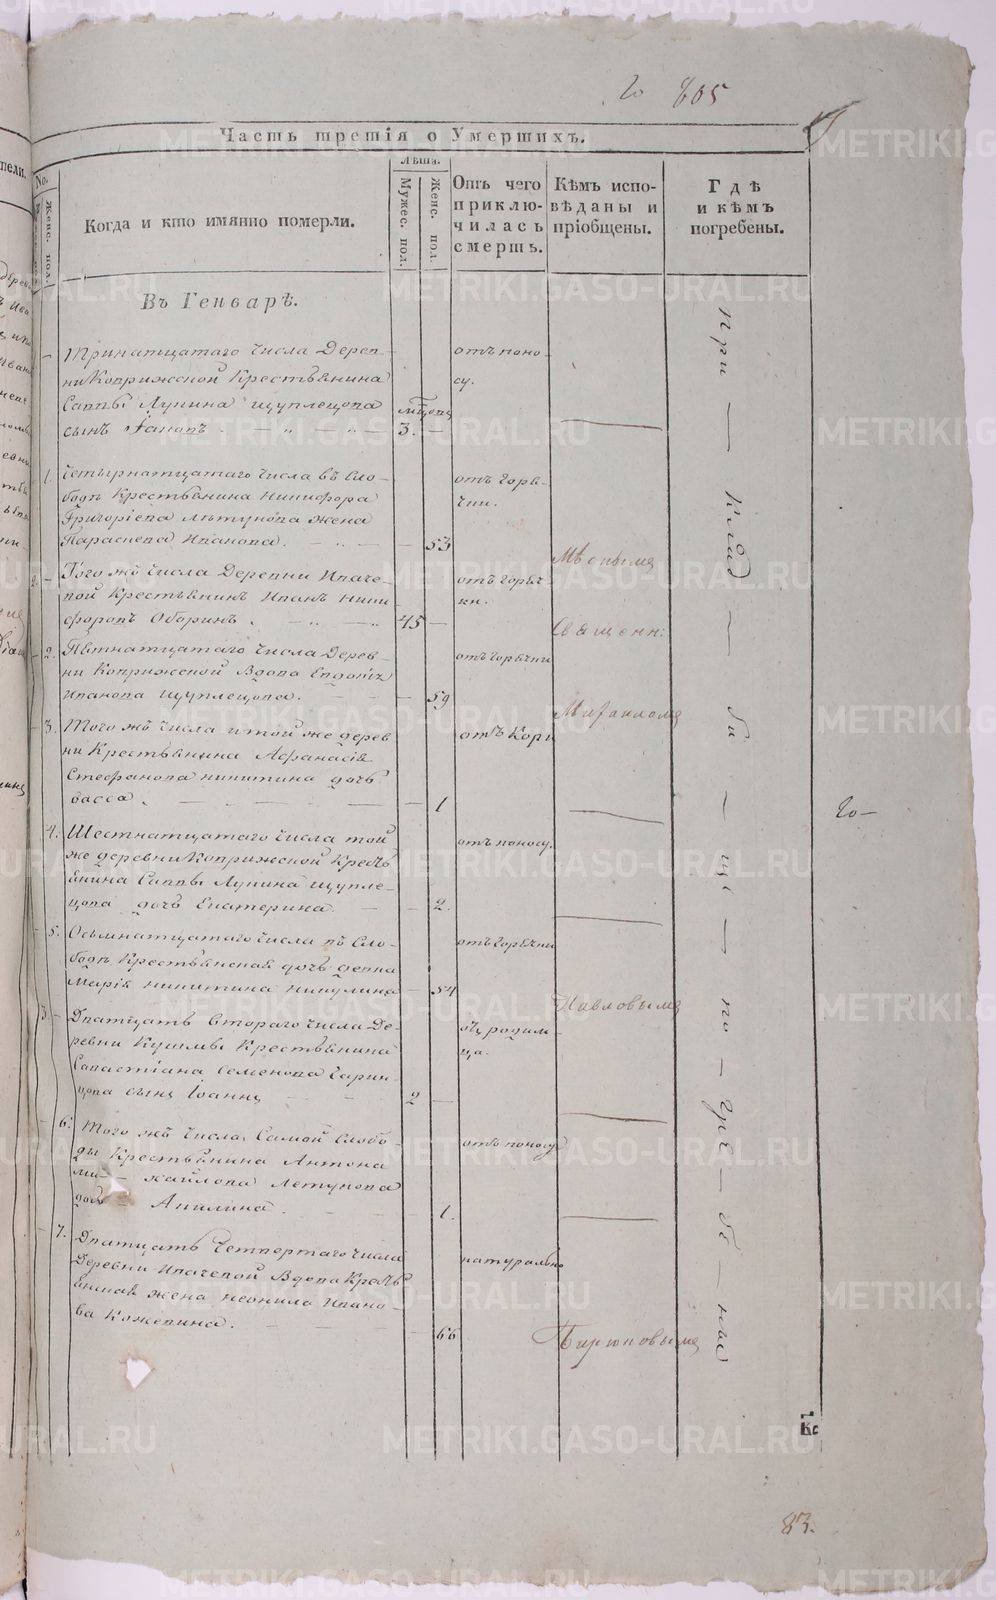 805
Часть третія о Умершихъ.
No.
Женс. пол.
Когда и кто имянно померли.
Лѣта.
Мужес. пол.
Женс. пол.
Отъ чего приключилась смерть.
Кѣмъ исповѣданы и пріобщены.
Гдѣ и кѣмъ погребены.
Въ Генварѣ.
Тринатцатаго числа Дерев-
ни Коврижской Крестьянина
Саввы Лупина Щуплецова
сынъ
3.
отъ поно-
су.
1. Четырнатцатаго числа въ Сло-
бодѣ Крестьянина Никифора
Григоріева Летунова жена
Параскева Иванова.
53
отъ горя-
чки.
2. Того жѣ числа Деревни Иваче-
вой Крестьянинъ Иванъ Ники-
форовъ Оборинъ.
45
отъ горяч
ки.
2. Пятнатцатаго числа Дерев-
ни Коврижской Вдова Евдокія
Иванова Щуплецова.
59
отъ горячки
3. Того жѣ числа и той же дерев
ни Крестьянина Афанасія
Стефанова Никитина дочь
Васса.
1
отъ Кори
4. Шестнатцатаго числа той
же деревни Коврижской Кресть
янина Саввы Лупина Щупле-
цова дочь Екатерина.
2.
отъ поносу.
5. Осьмнатцатаго числа въ Сло-
бодѣ Крестьянская дочь девка
Марія Никитина Никулина
54
отъ горячки
3. Дватцать втораго числа Де-
ревни Кушмы Крестьянина
Савастіана Семенова
сынъ Іоаннъ
2
отъ родим-
ца.
6. Того жѣ числа Самой Слобо-
ды Крестьянина Антона
Ми-хайлова Летунова
дочь Акилина.
1.
отъ поносу
7. Дватцать четвертаго числа
Деревни Ивачевой Вдова Кресть
янская жена Неонила Ивано-
ва Кожевина.
66
натурально
Священ:
Михаиломъ
Павловымъ
Бирюковымъ
при клад-би-ще-по-гре-бе-ны
83.
METRIKI.GASO-URAL.RU